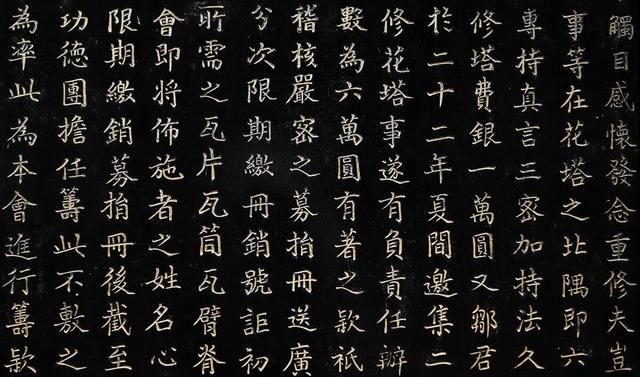 觸目感懷發念重修夫豈
事等在花塔之北隅即六
專持真言三密加持法久
修塔費銀一萬圓又鄒君
於二十二年夏間邀集二
修花塔事遂有負責任辦
數為六萬圓有著之款祇
稽核嚴密之募捐冊送廣
分次限期繳冊銷號詎初
所需之瓦片瓦筒瓦臂脊
會即將佈施者之姓名心
限期繳銷募捐冊後截至
功德團擔任籌此不敷之
為率此為本會進行籌款